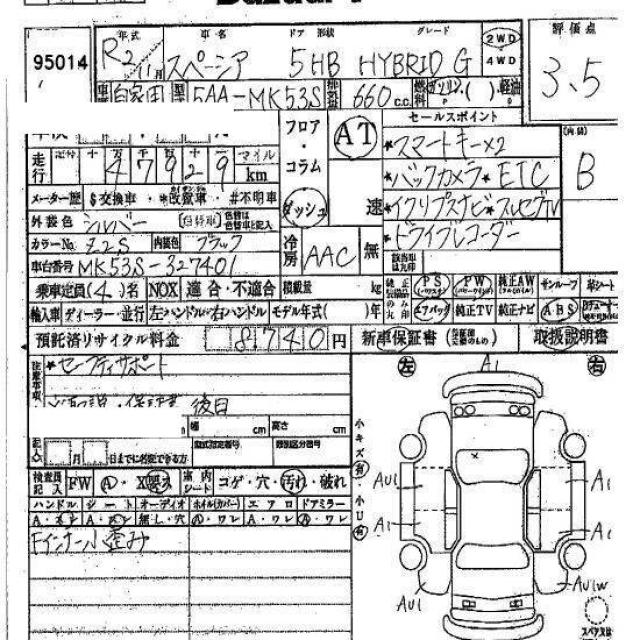 95014
年式 車名 ドア 形状 グレード
R2/11月 スペーシア 5HB HYBRID G
2WD
4WD
評価点
3.5
自家用 5AA-MK53S 660 c.c. 燃料 ガソリン・( )・軽油
フロア・コラム・ダッシュ
AT
速
セールスポイント
*スマートキー×2
*バックカメラ*ETC
*イクリプスナビ*フルセグTV
*ドライブレコーダー
内装
B
走行 十 4 7 9 2 9 マイル km
メーター歴 $交換車・*改ザン車・#不明車
外装色 シルバー 色替車
カラーNo. Z2S 内装色 ブラック
冷房 AAC 無
車台番号 MK53S-327401
乗車定員(4)名 NOX 適合・不適合 積載量 kg
PS PW 純正AW サンルーフ 革シート
輸入車 ディーラー・並行 左ハンドル・右ハンドル モデル年式( )年
エアバック 純正TV 純正ナビ ABS
預託済リサイクル料金 8,740円
新車保証書 取扱説明書
注意事項
*セーフティサポート
後日
幅 cm 高さ cm
型式指定番号 類別区分番号
記入 月 日までに名変できる方
小キズ有・小U有
左 右
検査員記入 FW A・X 室内シート コゲ・穴・汚れ・破れ
ハンドル シート オーディオ ホイル(カバー) エアロ ドアミラー
A・スレ A・スレ 無し・穴 A・ワレ A・ワレ A・ワレ
Fインナー小歪み
A1
AU1
A1
A1
A1
AU1
AU1W
スペアタイヤ